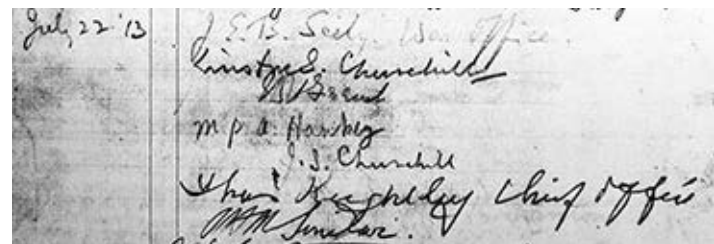 July 22 '13 J. E. B. Seely. War Office.
Winston S. Churchill
M P A Hankey
J. S. Churchill
Thos Keighley Chief Office
Sinclair.